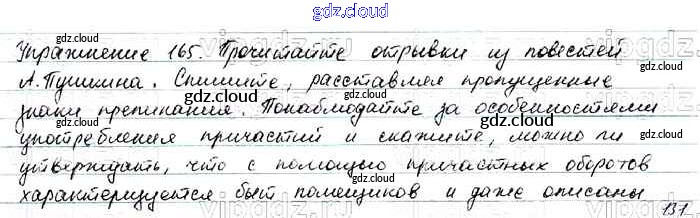 gdz.cloud
Упражнение 165. Прочитайте отрывки из повестей
А. Пушкина. Спишите, расставляя пропущенные
знаки препинания. Понаблюдайте за особенностями
употребления причастий и скажите, можно ли
утверждать, что с помощью причастных оборотов
характеризуется быт помещиков и даже описаны
131